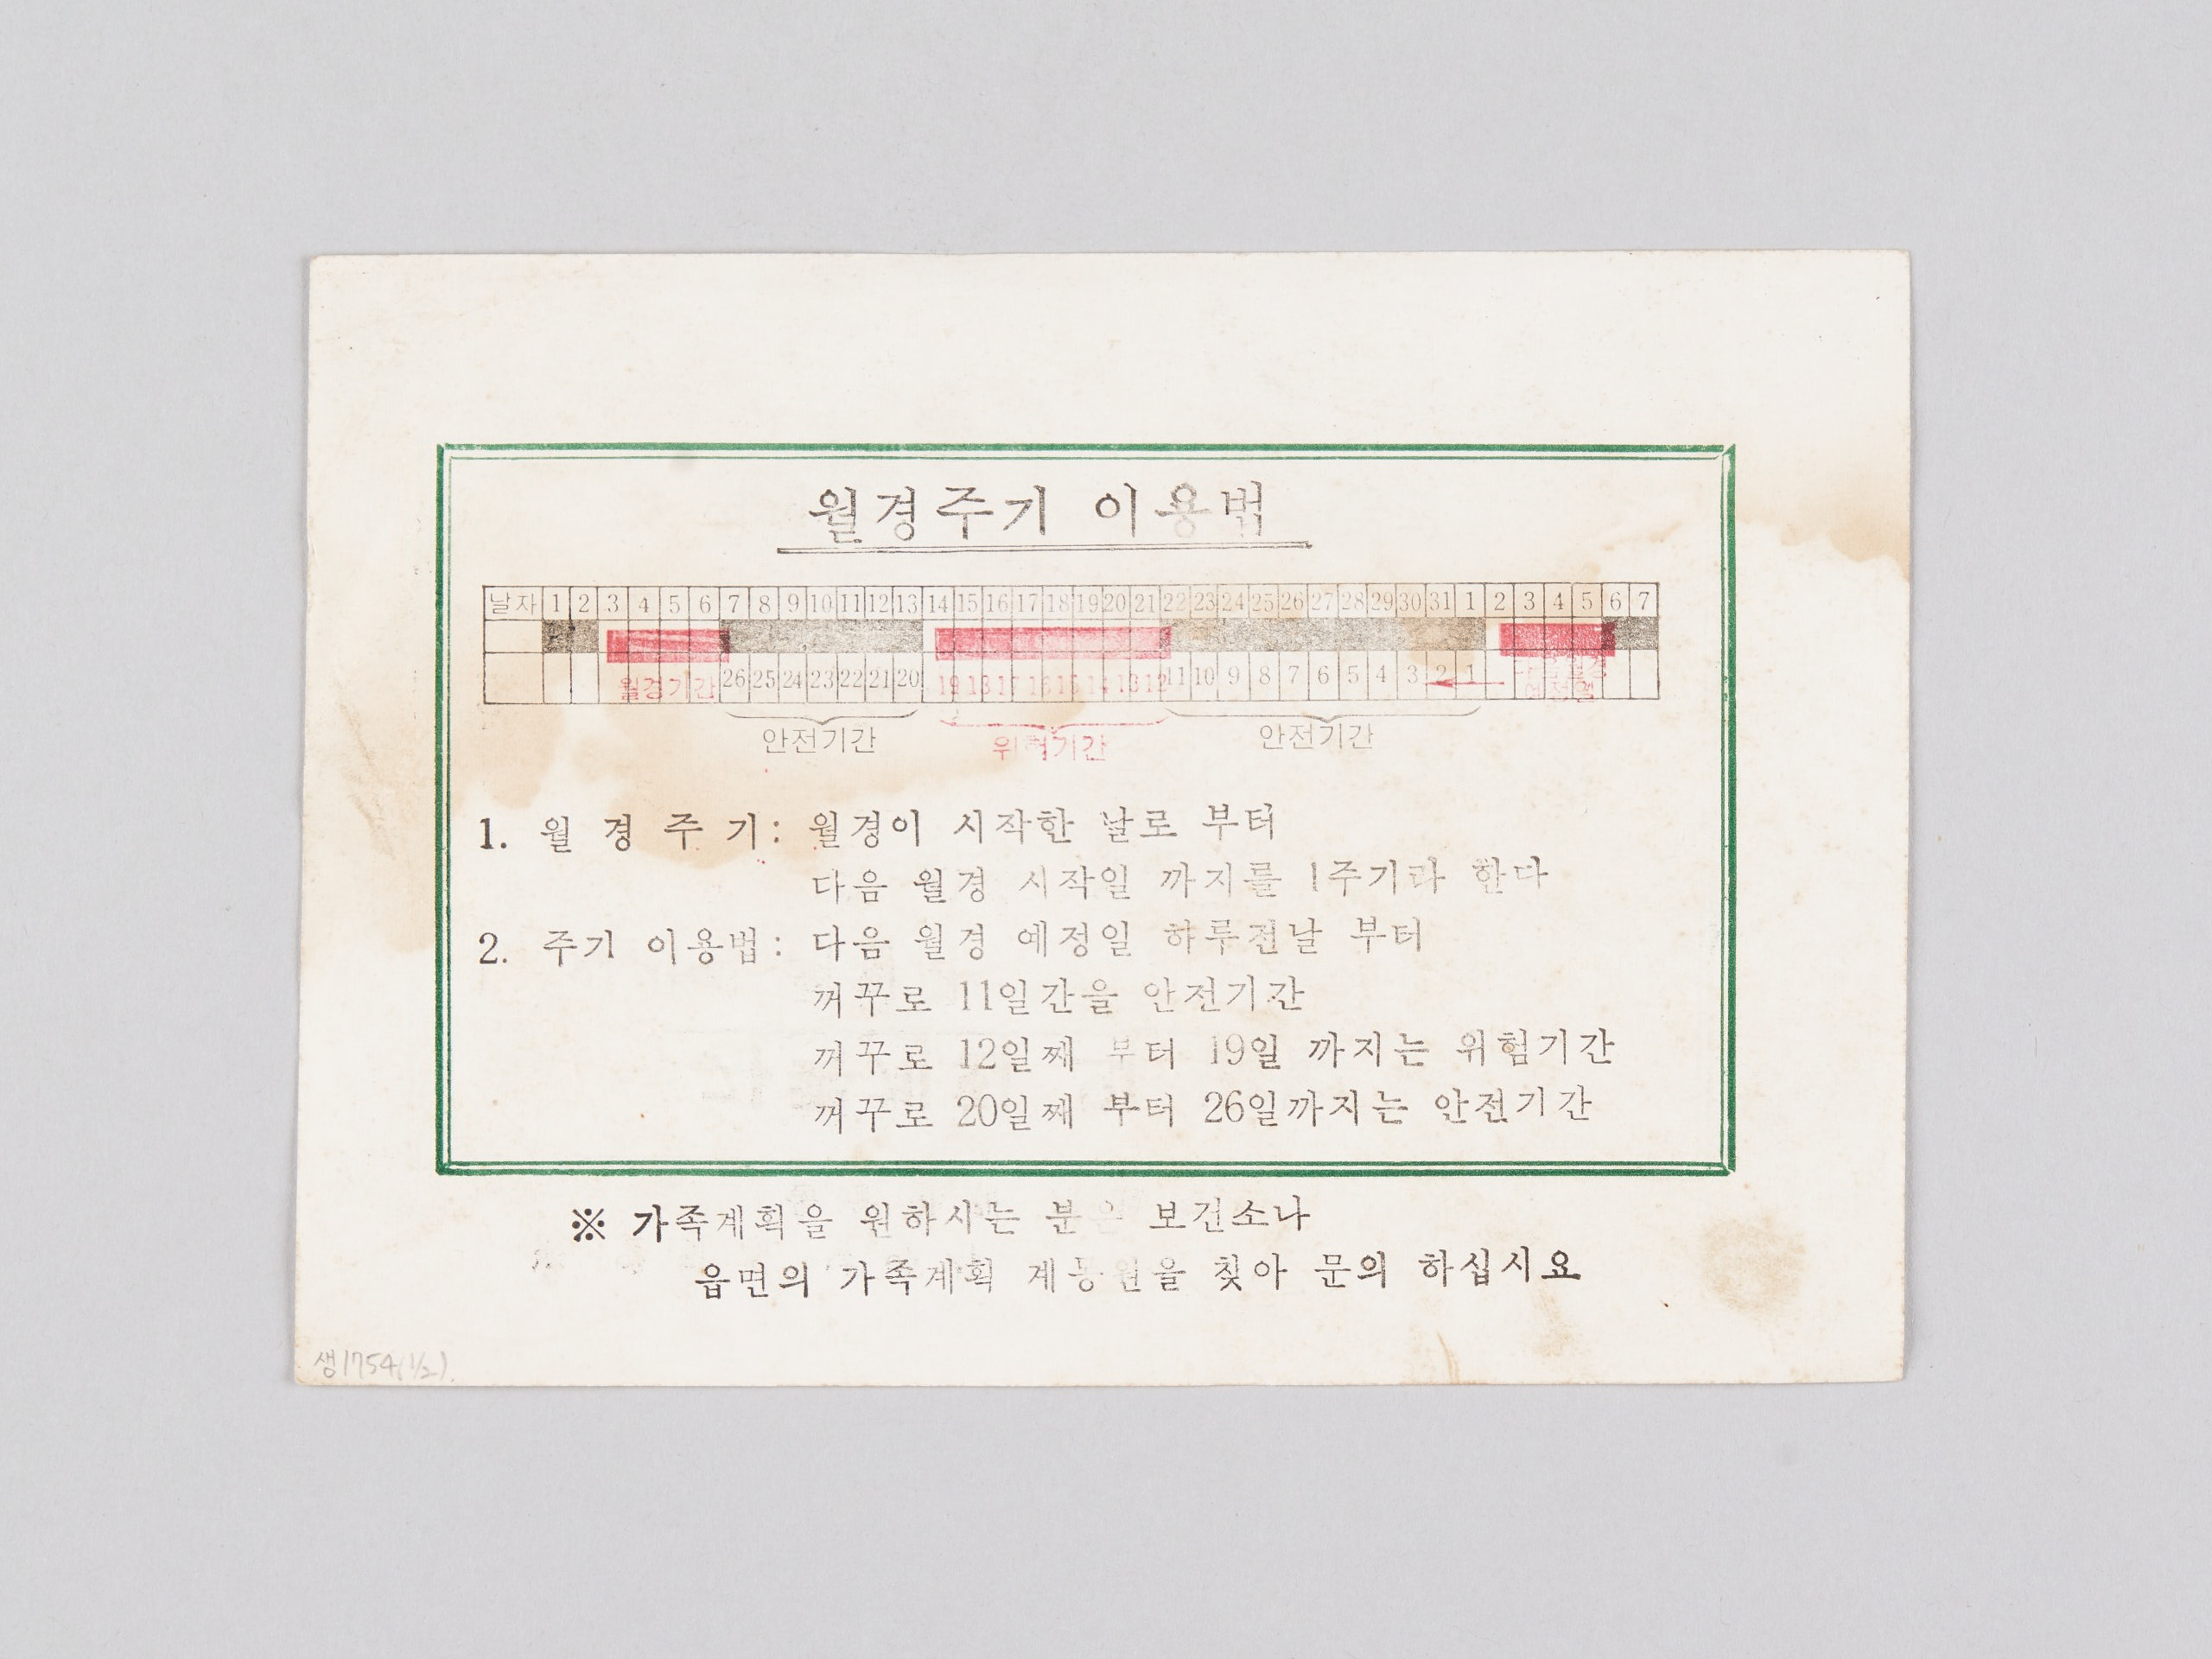 월경주기 이용법
날자 1 2 3 4 5 6 7 8 9 10 11 12 13 14 15 16 17 18 19 20 21 22 23 24 25 26 27 28 29 30 31 1 2 3 4 5 6 7
월경기간 26 25 24 23 22 21 20 19 18 17 16 15 14 13 12 11 10 9 8 7 6 5 4 3 2 1 다음월경
예정일
안전기간 위험기간 안전기간
1. 월 경 주 기: 월경이 시작한 날로 부터
다음 월경 시작일 까지를 1주기라 한다
2. 주기 이용법: 다음 월경 예정일 하루전날 부터
꺼꾸로 11일간을 안전기간
꺼꾸로 12일째 부터 19일 까지는 위험기간
꺼꾸로 20일째 부터 26일까지는 안전기간
※ 가족계획을 원하시는 분은 보건소나
읍면의 가족계획 계동원을 찾아 문의 하십시요
생1754(1/2)